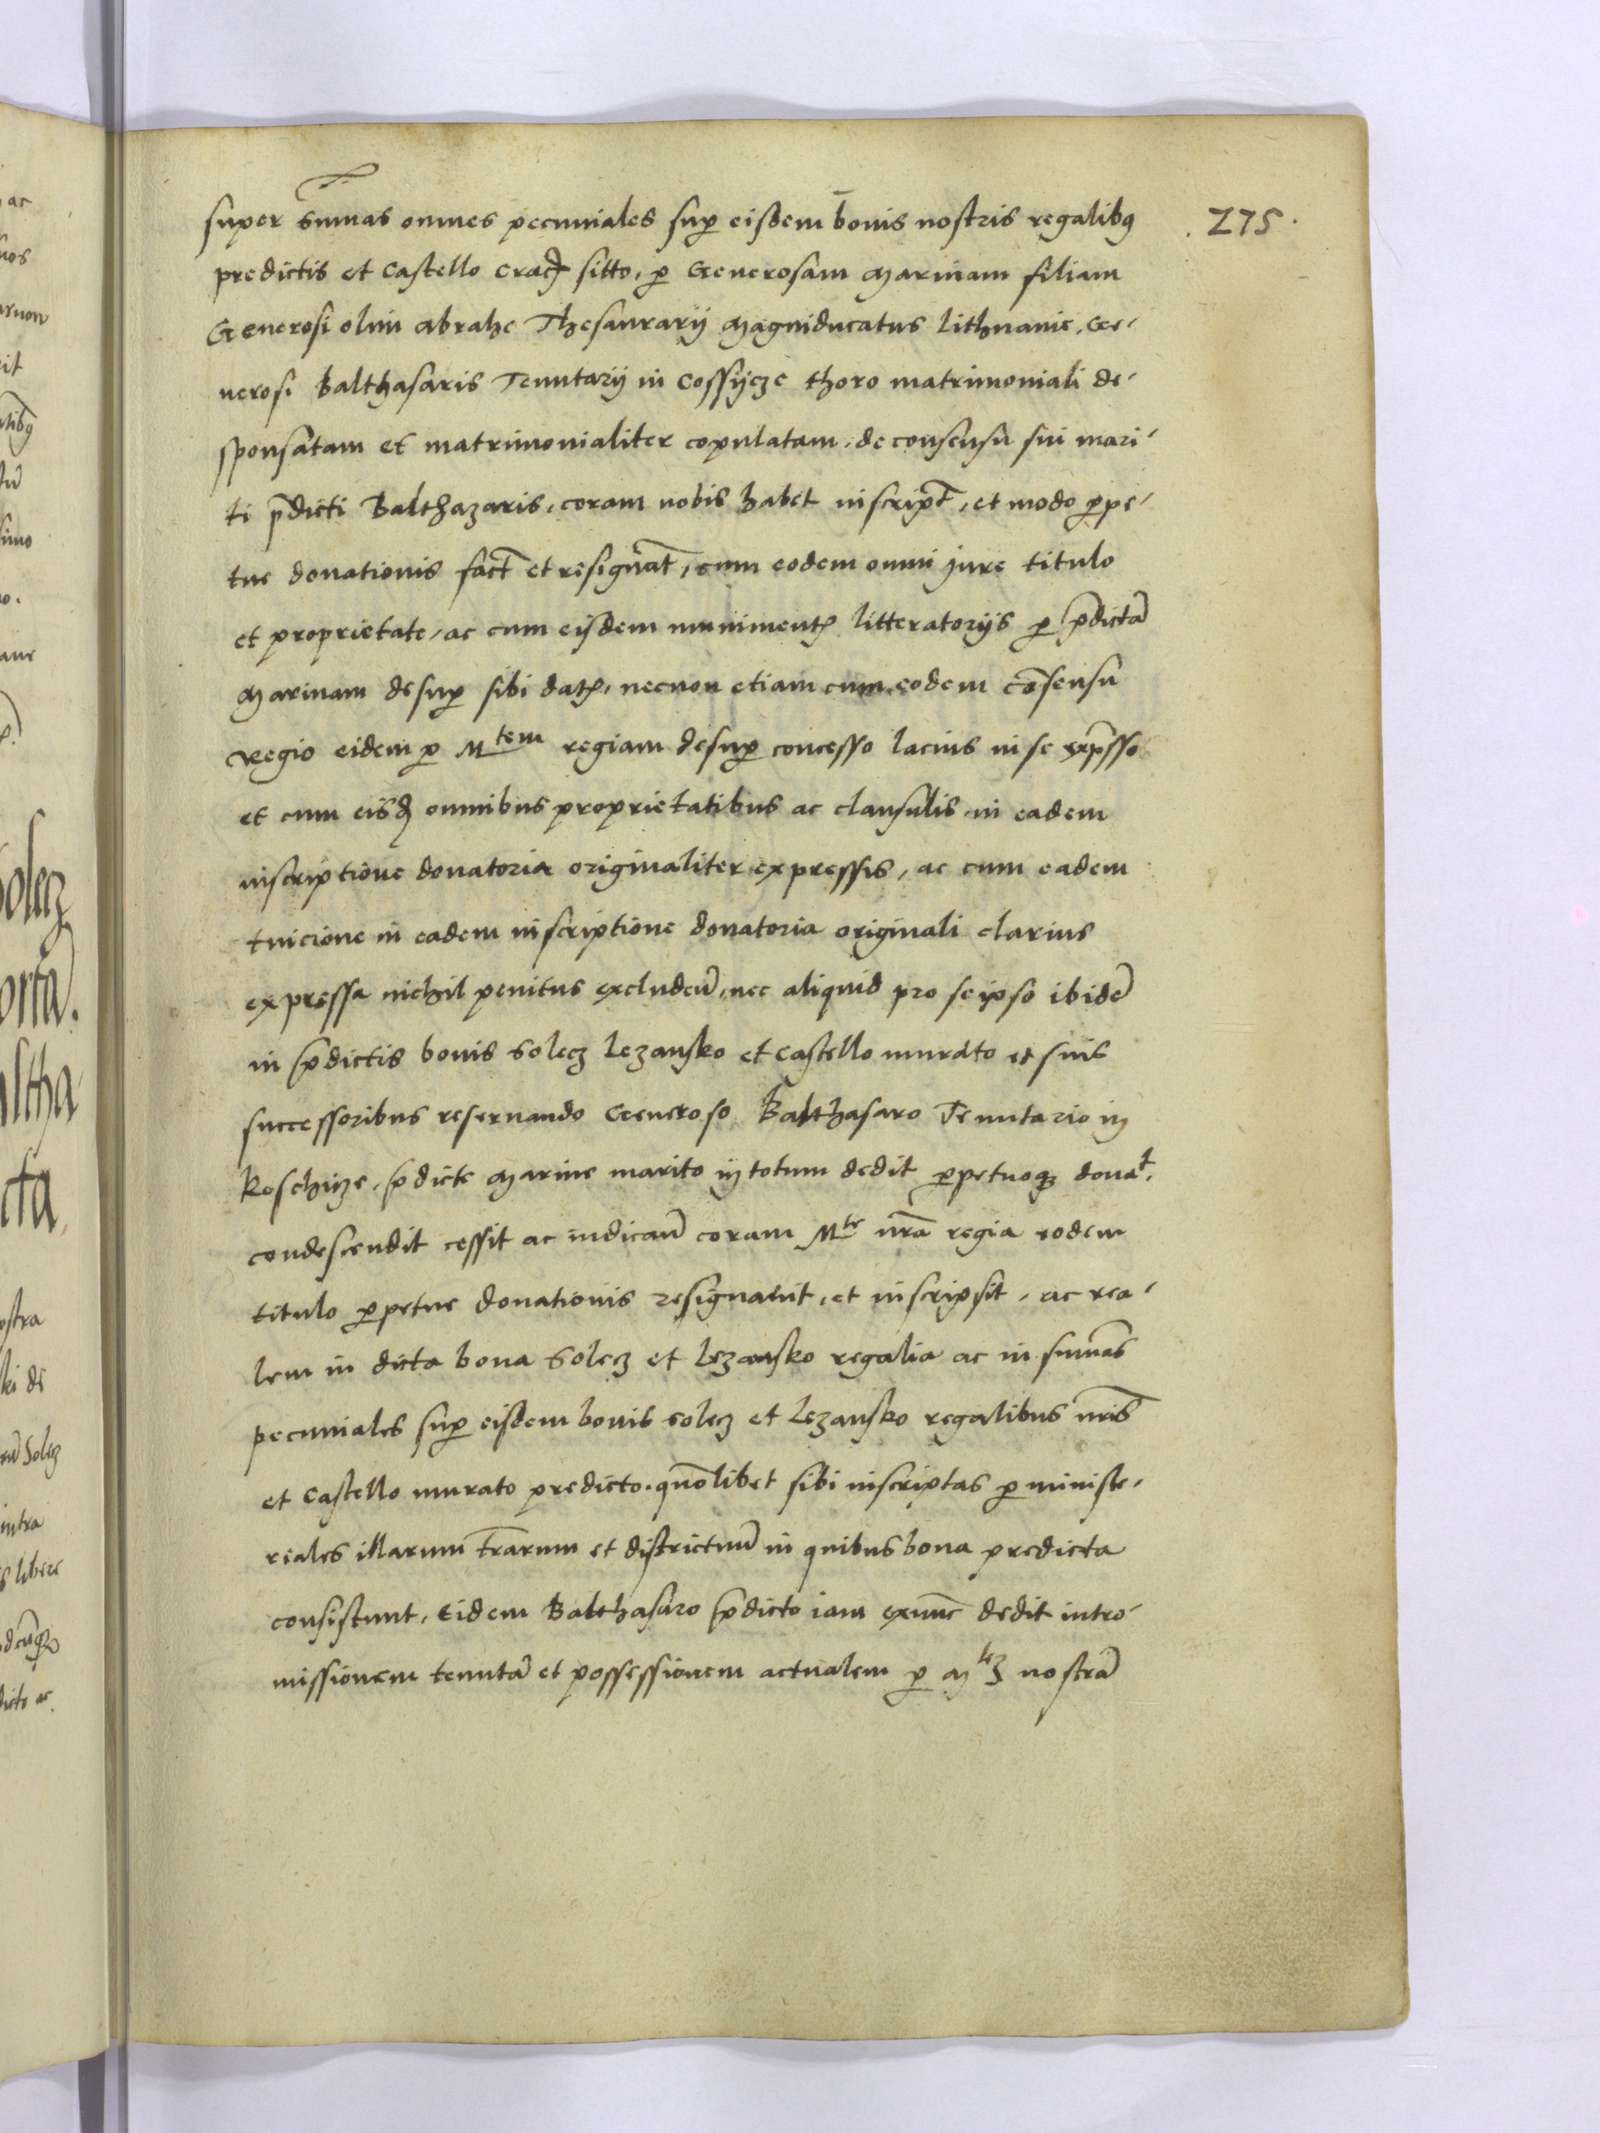 super sum̄as omnes pecuniales sup eisdem bonis nostris regalibq
275
predictis et Castello sitto, p Generosam Marinam filiam
Generosi olim Abrahe Thesaurarij Magniducatus Lithuanie, Ge-
nerosi Balthasaris Tenutarij in Cossijcze thoro matrimoniali de-
sponsatam et matrimonialiter copulatam, de consensu sui mari-
ti p̄dicti Balthazaris, coram nobis habet inscript̄, et modo ppe-
tue donationis fact̄ et resignat̄, cum eodem omni jure titulo
et proprietate, ac cum eisdem muniment litteratorijs p p̄dictā
Marinam desup sibi dat, necnon etiam cum eodem cōsensu
Regio eidem p Mtem regiam desup concesso lacius in se exp̄sso
et cum eisd omnibus proprietatibus ac clausulis in eadem
inscriptione donatoria originaliter expressis, ac cum eadem
tuicione in eadem inscriptione donatoria originali clarius
expressa nichil penitus excludeñ, nec aliquid pro seipso ibidē
in p̄dictis bonis Solecz Lezansko et Castello murato et suis
successoribus reseruando Generoso Balthasaro Tenutario in
Koschijze, p̄dicte Marine marito in totum dedit ppetuoq donat,
condescendit cessit ac indicauit coram Mte nr̄a regia eodem
titulo ppetue donationis resignauit, et inscripsit, ac rea-
lem in dicta bona Solecz et Lezansko regalia ac in sum̄as
pecuniales sup eisdem bonis Solecz et Lezansko regalibus nr̄is
et Castello murato predicto quōlibet sibi inscriptas p ministe-
riales illarum tr̄arum et districtuū in quibus bona predicta
consistunt, Eidem Balthasaro p̄dicto iam exnūc dedit intro-
missionem tenutā et possessionem actualem p M nostrā